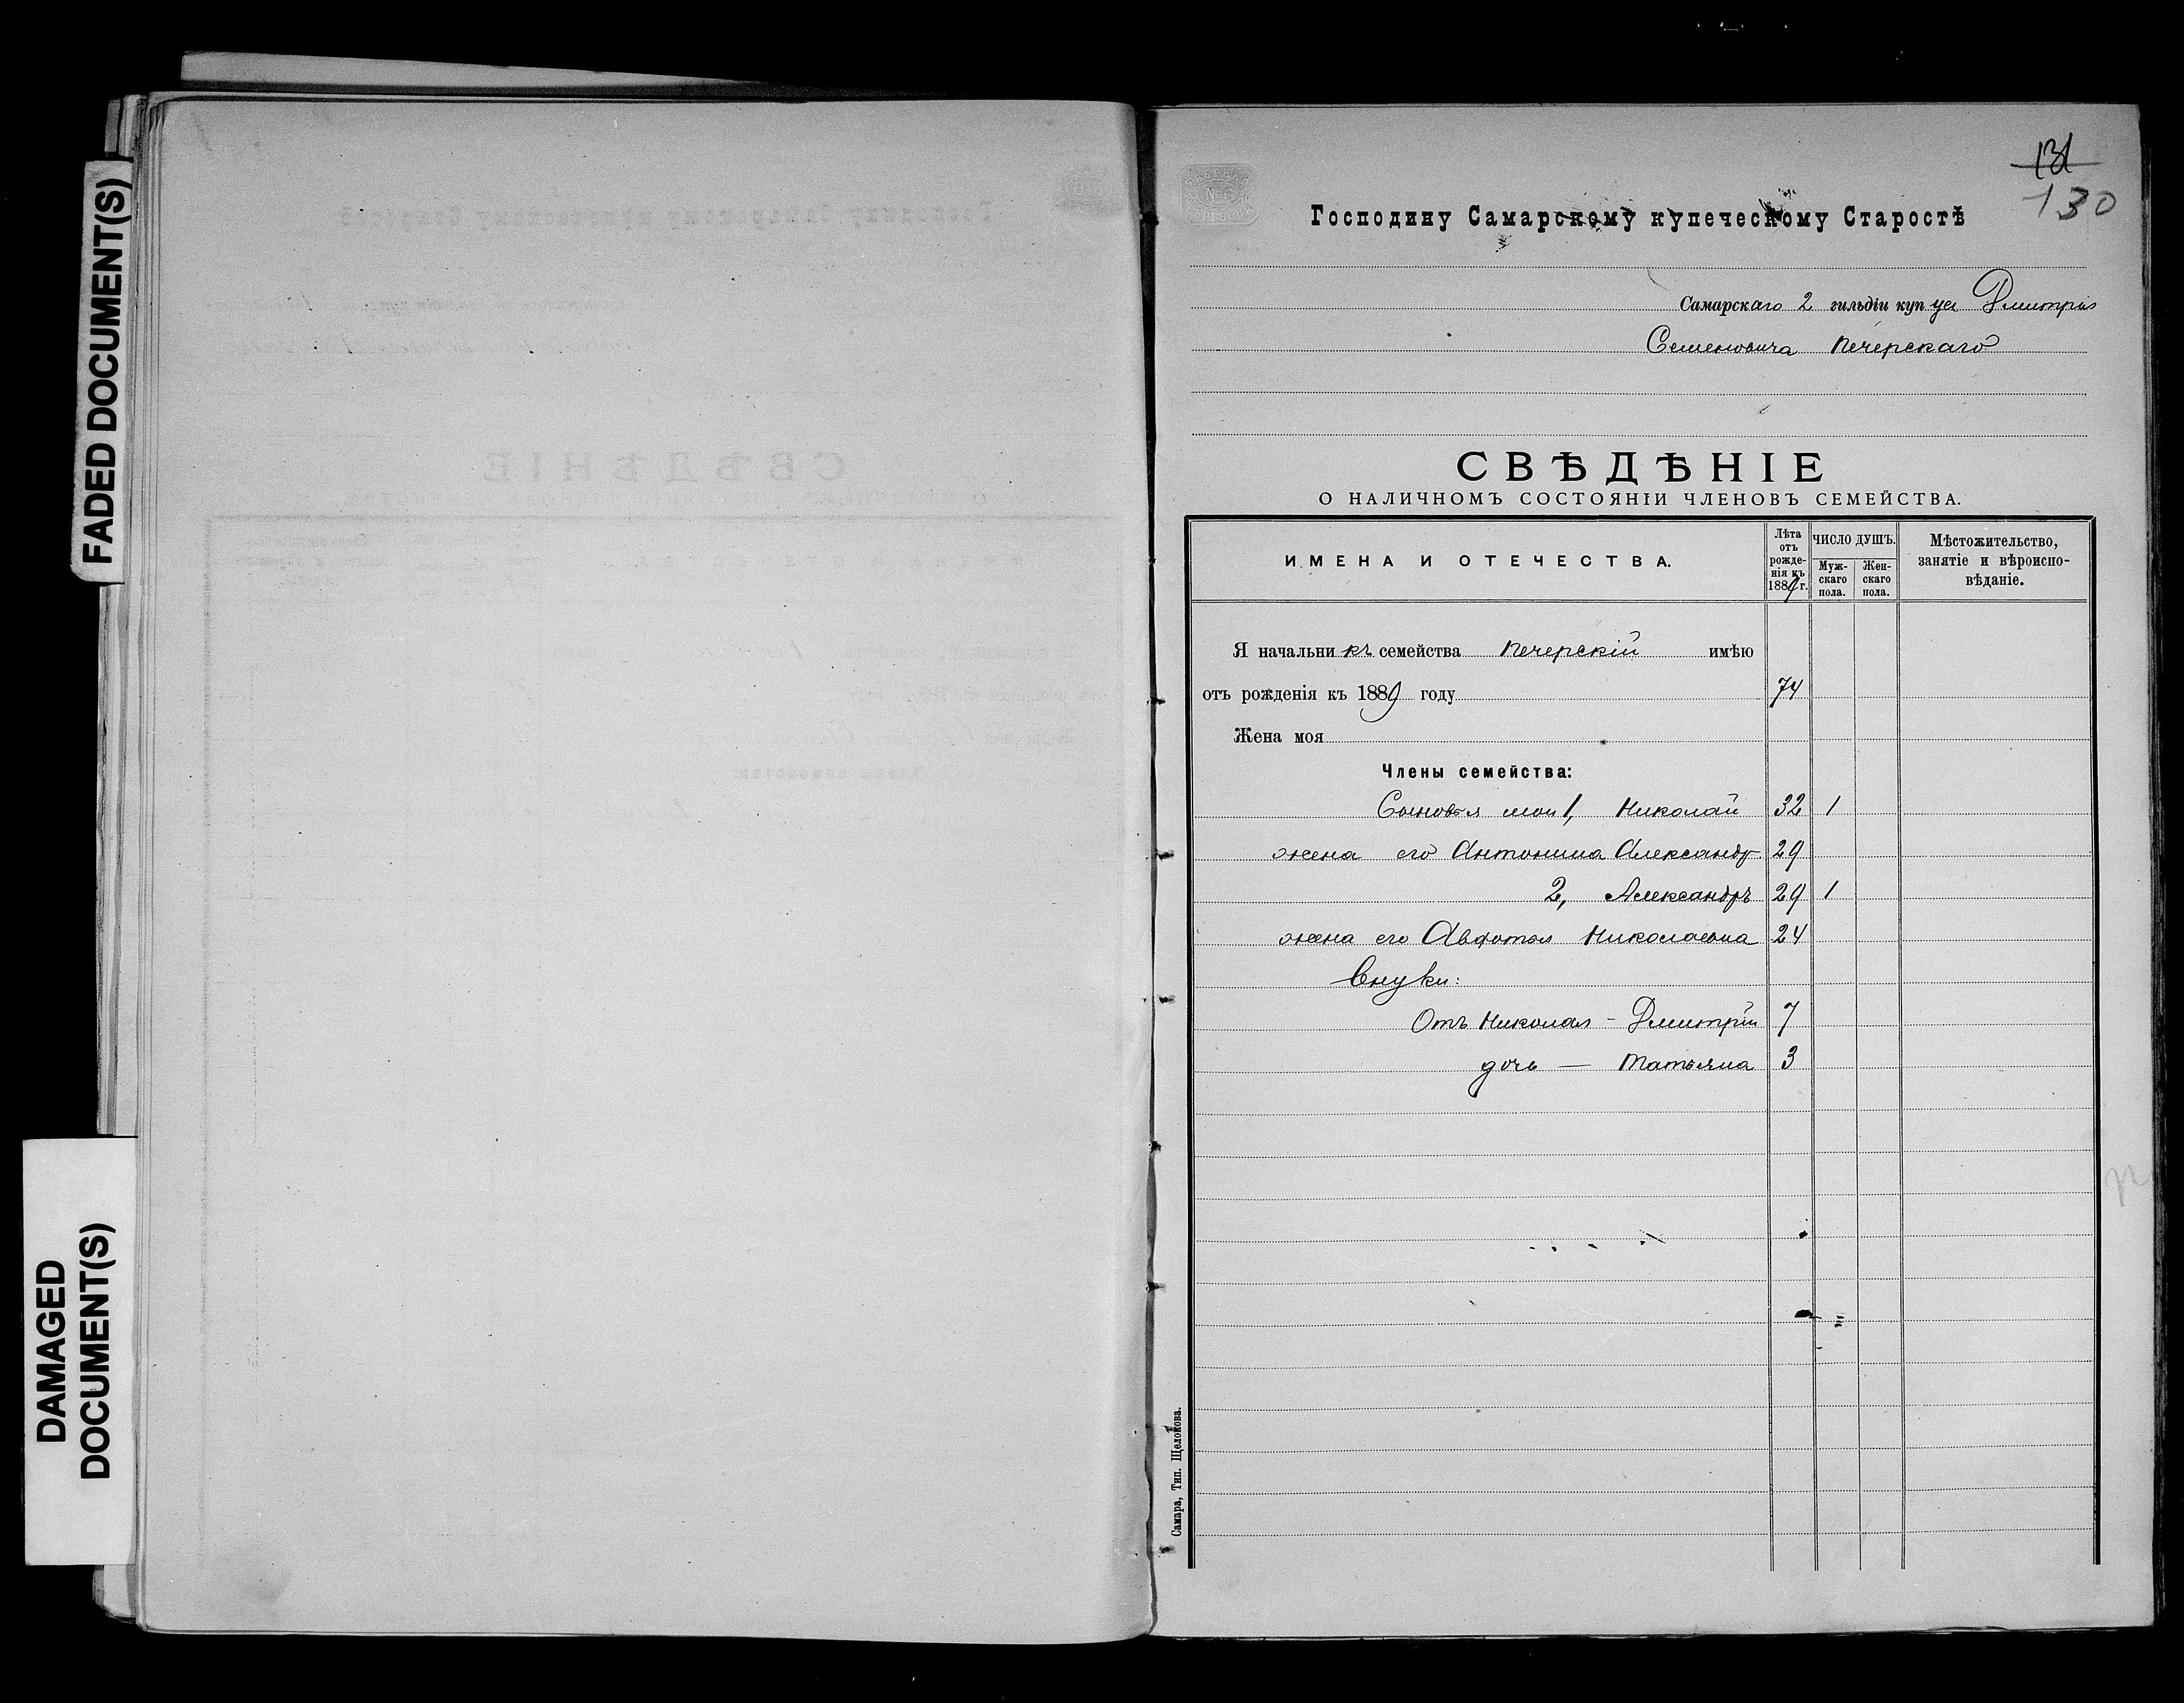 FADED DOCUMENT(S)
DAMAGED
DOCUMENT(S)
131
130
Господину Самарскому купеческому Старостѣ
Самарскаго 2 гильдіи купца Дмитрія
Семеновича Печерскаго
СВѢДѢНІЕ
О НАЛИЧНОМЪ СОСТОЯНІИ ЧЛЕНОВЪ СЕМЕЙСТВА.
ИМЕНА И ОТЕЧЕСТВА.
Лѣта
отъ
рожде-
нія къ
1889 г.
ЧИСЛО ДУШЪ.
Муж-
скаго
пола.
Жен-
скаго
пола.
Мѣстожительство,
занятіе и вѣроиспо-
вѣданіе.
Я начальникъ семейства Печерскій имѣю
отъ рожденія къ 1889 году 74
Жена моя
Члены семейства:
Сыновья мои 1, Николай 32 1
жена его Антонина Александр. 29
2, Александръ 29 1
жена его Авдотья Николаевна 24
Внуки:
Отъ Николая - Дмитрій 7
дочь — Татьяна 3
Самара, Тип. Щелокова.